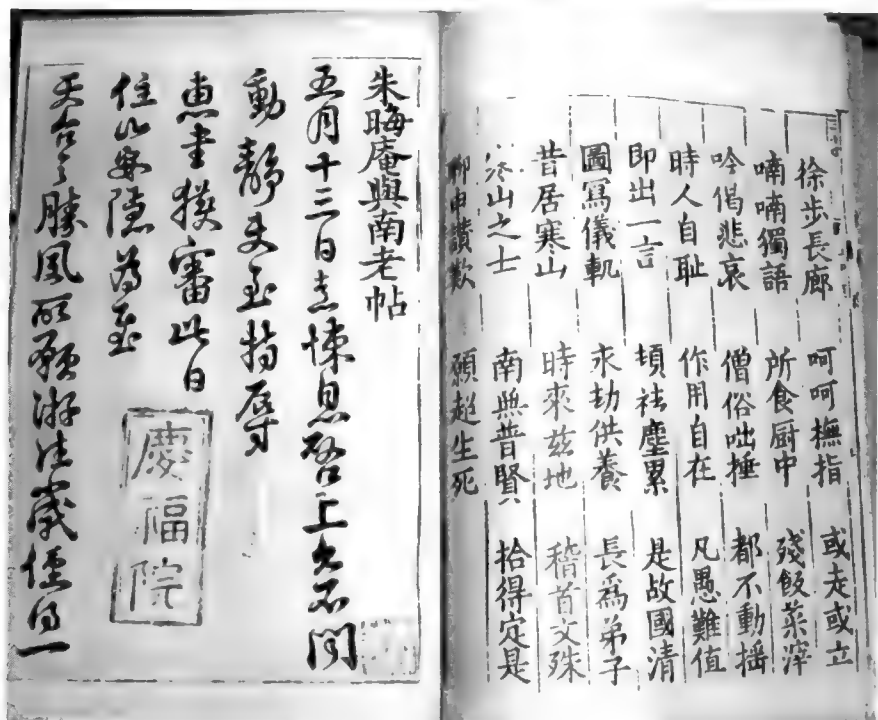 徐步長廊 呵呵撫指 或走或立
喃喃獨語 所食厨中 殘飯菜滓
吟偈悲哀 僧俗咄捶 都不動揺
時人自耻 作用自在 凡愚難值
即出一言 頓祛塵累 是故國清
圖寫儀軌 永劫供養 長爲弟子
昔居寒山 時來兹地 稽首文殊
寒山之士 南無普賢 拾得定是
聊申讚歎 願超生死
朱晦庵與南老帖
五月十三日熹悚息啓上久不聞
動静使至特辱
惠書獲審此日
住山安隱爲慰
天台之勝夙所願游往歲僅得一
慶福院